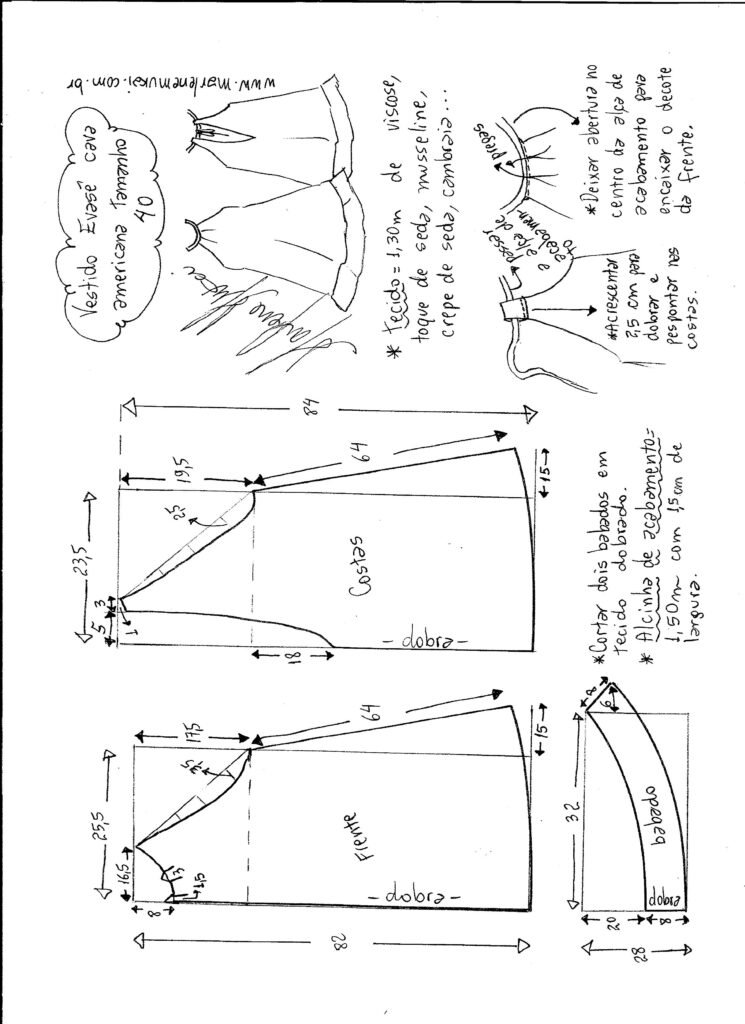 Vestido Evasê cava
americana tamanho
40
www.marlenemukai.com.br
Marlene Mukai
* Tecido = 1,30m de viscose,
toque de seda, musseline,
crepe de seda, cambraia...
passar
a alça de
acabamen
to
pregas
*Acrescentar
2,5 cm para
dobrar e
pespontar nas
costas.
*Deixar abertura no
centro da alça de
acabamento para
encaixar o decote
da frente.
25,5
16,5
17,5
8
3
1,5
3,5
64
82
Frente
-dobra-
15
23,5
5
3
1
19,5
2,5
64
84
18
Costas
-dobra-
15
32
8
6
20
8
28
babado
dobra
*Cortar dois babados em
tecido dobrado.
* Alcinha de acabamento=
1,50m com 1,5cm de
largura.